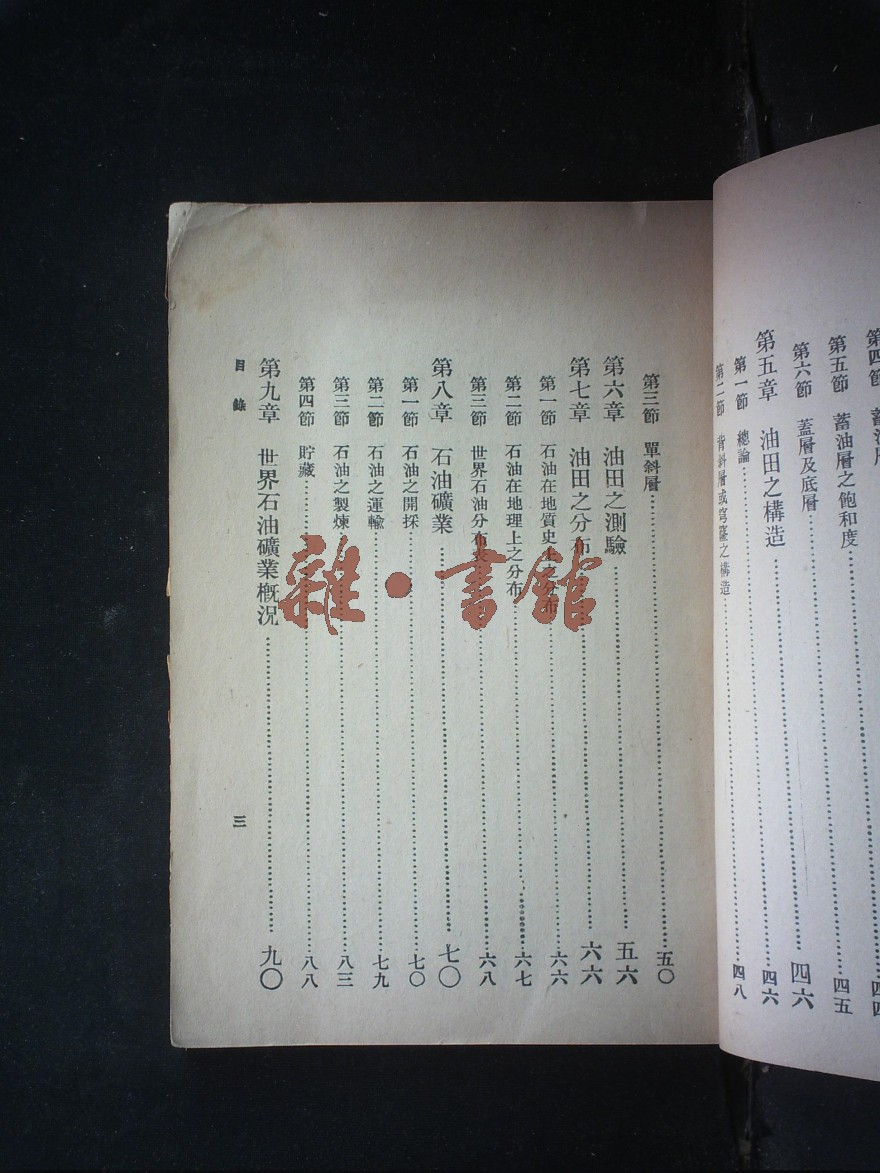 第四節 蓄油層 四四
第五節 蓄油層之飽和度 四五
第六節 蓋層及底層 四六
第五章 油田之構造 四六
第一節 總論 四八
第二節 背斜層或穹窿之構造
第三節 單斜層 五〇
第六章 油田之測驗 五六
第七章 油田之分布 六六
第一節 石油在地質史上之分布 六六
第二節 石油在地理上之分布 六七
第三節 世界石油分布表 六八
第八章 石油礦業 七〇
第一節 石油之開採 七〇
第二節 石油之運輸 七九
第三節 石油之製煉 八三
第四節 貯藏 八八
第九章 世界石油礦業概況 九〇
目錄
三
雜·書館